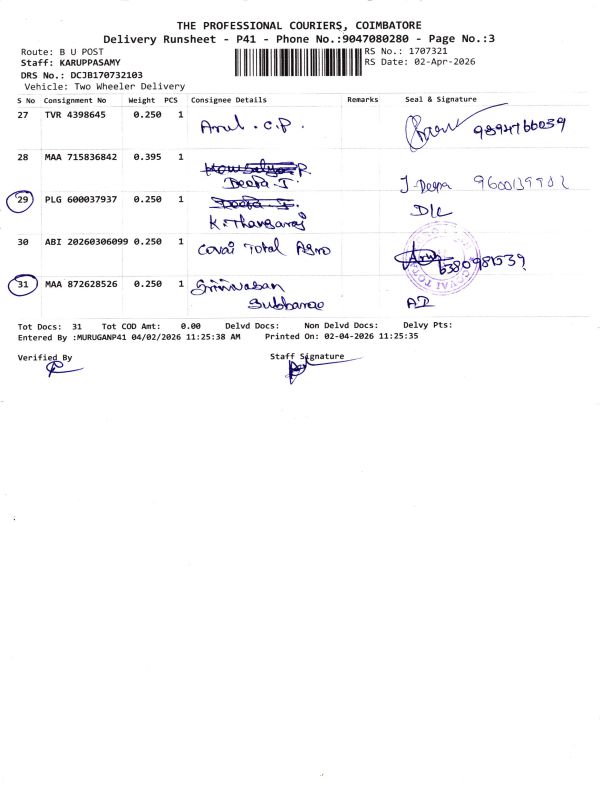 THE PROFESSIONAL COURIERS, COIMBATORE
Delivery Runsheet - P41 - Phone No.:9047080280 - Page No.:3
Route: B U POST RS No.: 1707321
Staff: KARUPPASAMY RS Date: 02-Apr-2026
DRS No.: DCJB170732103
Vehicle: Two Wheeler Delivery
S No Consignment No Weight PCS Consignee Details Remarks Seal & Signature
27 TVR 4398645 0.250 1 Arul . C.P. 9894766039
28 MAA 715836842 0.395 1
Deepa . I. J. Deepa
29 PLG 600037937 0.250 1 Deepa . I. D/L
K. Thangaraj
30 ABI 20260306099 0.250 1 Covai Total Agro
31 MAA 872628526 0.250 1 Srinivasan
Subbarao AD
Tot Docs: 31 Tot COD Amt: 0.00 Delvd Docs: Non Delvd Docs: Delvy Pts:
Entered By :MURUGANP41 04/02/2026 11:25:38 AM Printed On: 02-04-2026 11:25:35
Verified By Staff Signature